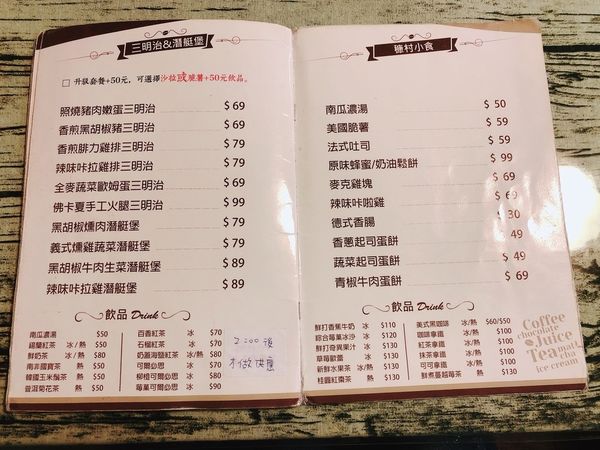 三明治&潛艇堡
升級套餐+50元，可選擇沙拉或脆薯+50元飲品。
照燒豬肉嫩蛋三明治 $ 69
香煎黑胡椒豬三明治 $ 69
香煎腓力雞排三明治 $ 79
辣味咔拉雞排三明治 $ 79
全麥蔬菜歐姆蛋三明治 $ 69
佛卡夏手工火腿三明治 $ 99
黑胡椒燻肉潛艇堡 $ 79
義式燻雞蔬菜潛艇堡 $ 79
黑胡椒牛肉生菜潛艇堡 $ 89
辣味咔拉雞潛艇堡 $ 89
飲品 Drink
南瓜濃湯 $50
錫蘭紅茶 冰/熱 $50
鮮奶茶 冰/熱 $80
南非國寶茶 熱 $50
韓國玉米鬚茶 熱 $50
普洱菊花茶 熱 $50
百香紅茶 冰 $70
石榴紅茶 冰 $70
奶蓋海鹽紅茶 冰/熱 $80
可爾必思 冰 $70
柳橙可爾必思 冰 $80
莓菓可爾必思 冰 $90
2:00後
不做供應
穗村小食
南瓜濃湯 $ 50
美國脆薯 $ 59
法式吐司 $ 59
原味蜂蜜/奶油鬆餅 $ 99
麥克雞塊 $ 69
辣味咔啦雞 $ 69
德式香腸 30
香蔥起司蛋餅 49
蔬菜起司蛋餅 $ 49
青椒牛肉蛋餅 $ 69
飲品 Drink
鮮打香蕉牛奶 冰 $110
綜合莓菓冰沙 冰 $120
鮮打奇異果汁 冰 $130
草莓歐蕾 冰 $130
新鮮水果茶 冰/熱 $130
桂圓紅棗茶 熱 $130
美式黑咖啡 冰/熱 $60/$50
咖啡拿鐵 冰/熱 $100
紅茶拿鐵 冰/熱 $100
抹茶拿鐵 冰/熱 $100
可可拿鐵 冰/熱 $100
鮮煮蔓越莓茶 熱 $130
Coffee
chocolate
Juice
Tea matcha
ice cream